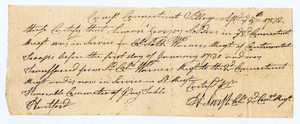 Camp Connecticut Village Sept 26th 1780
these Certify that Simeon George Soldier in 2d Connecticut
Regt was in Service in Col. Seth Warners Regt of Continental
Troops before the first day of January 1780 and was
Transferred from sd Col. Warners Regt to the 2d Connecticut
Regt and is now in Service in sd Regt
Certified pr
Honorable Committee of Pay Table
Hartford
H. Swift Col. 2d Con. Regt